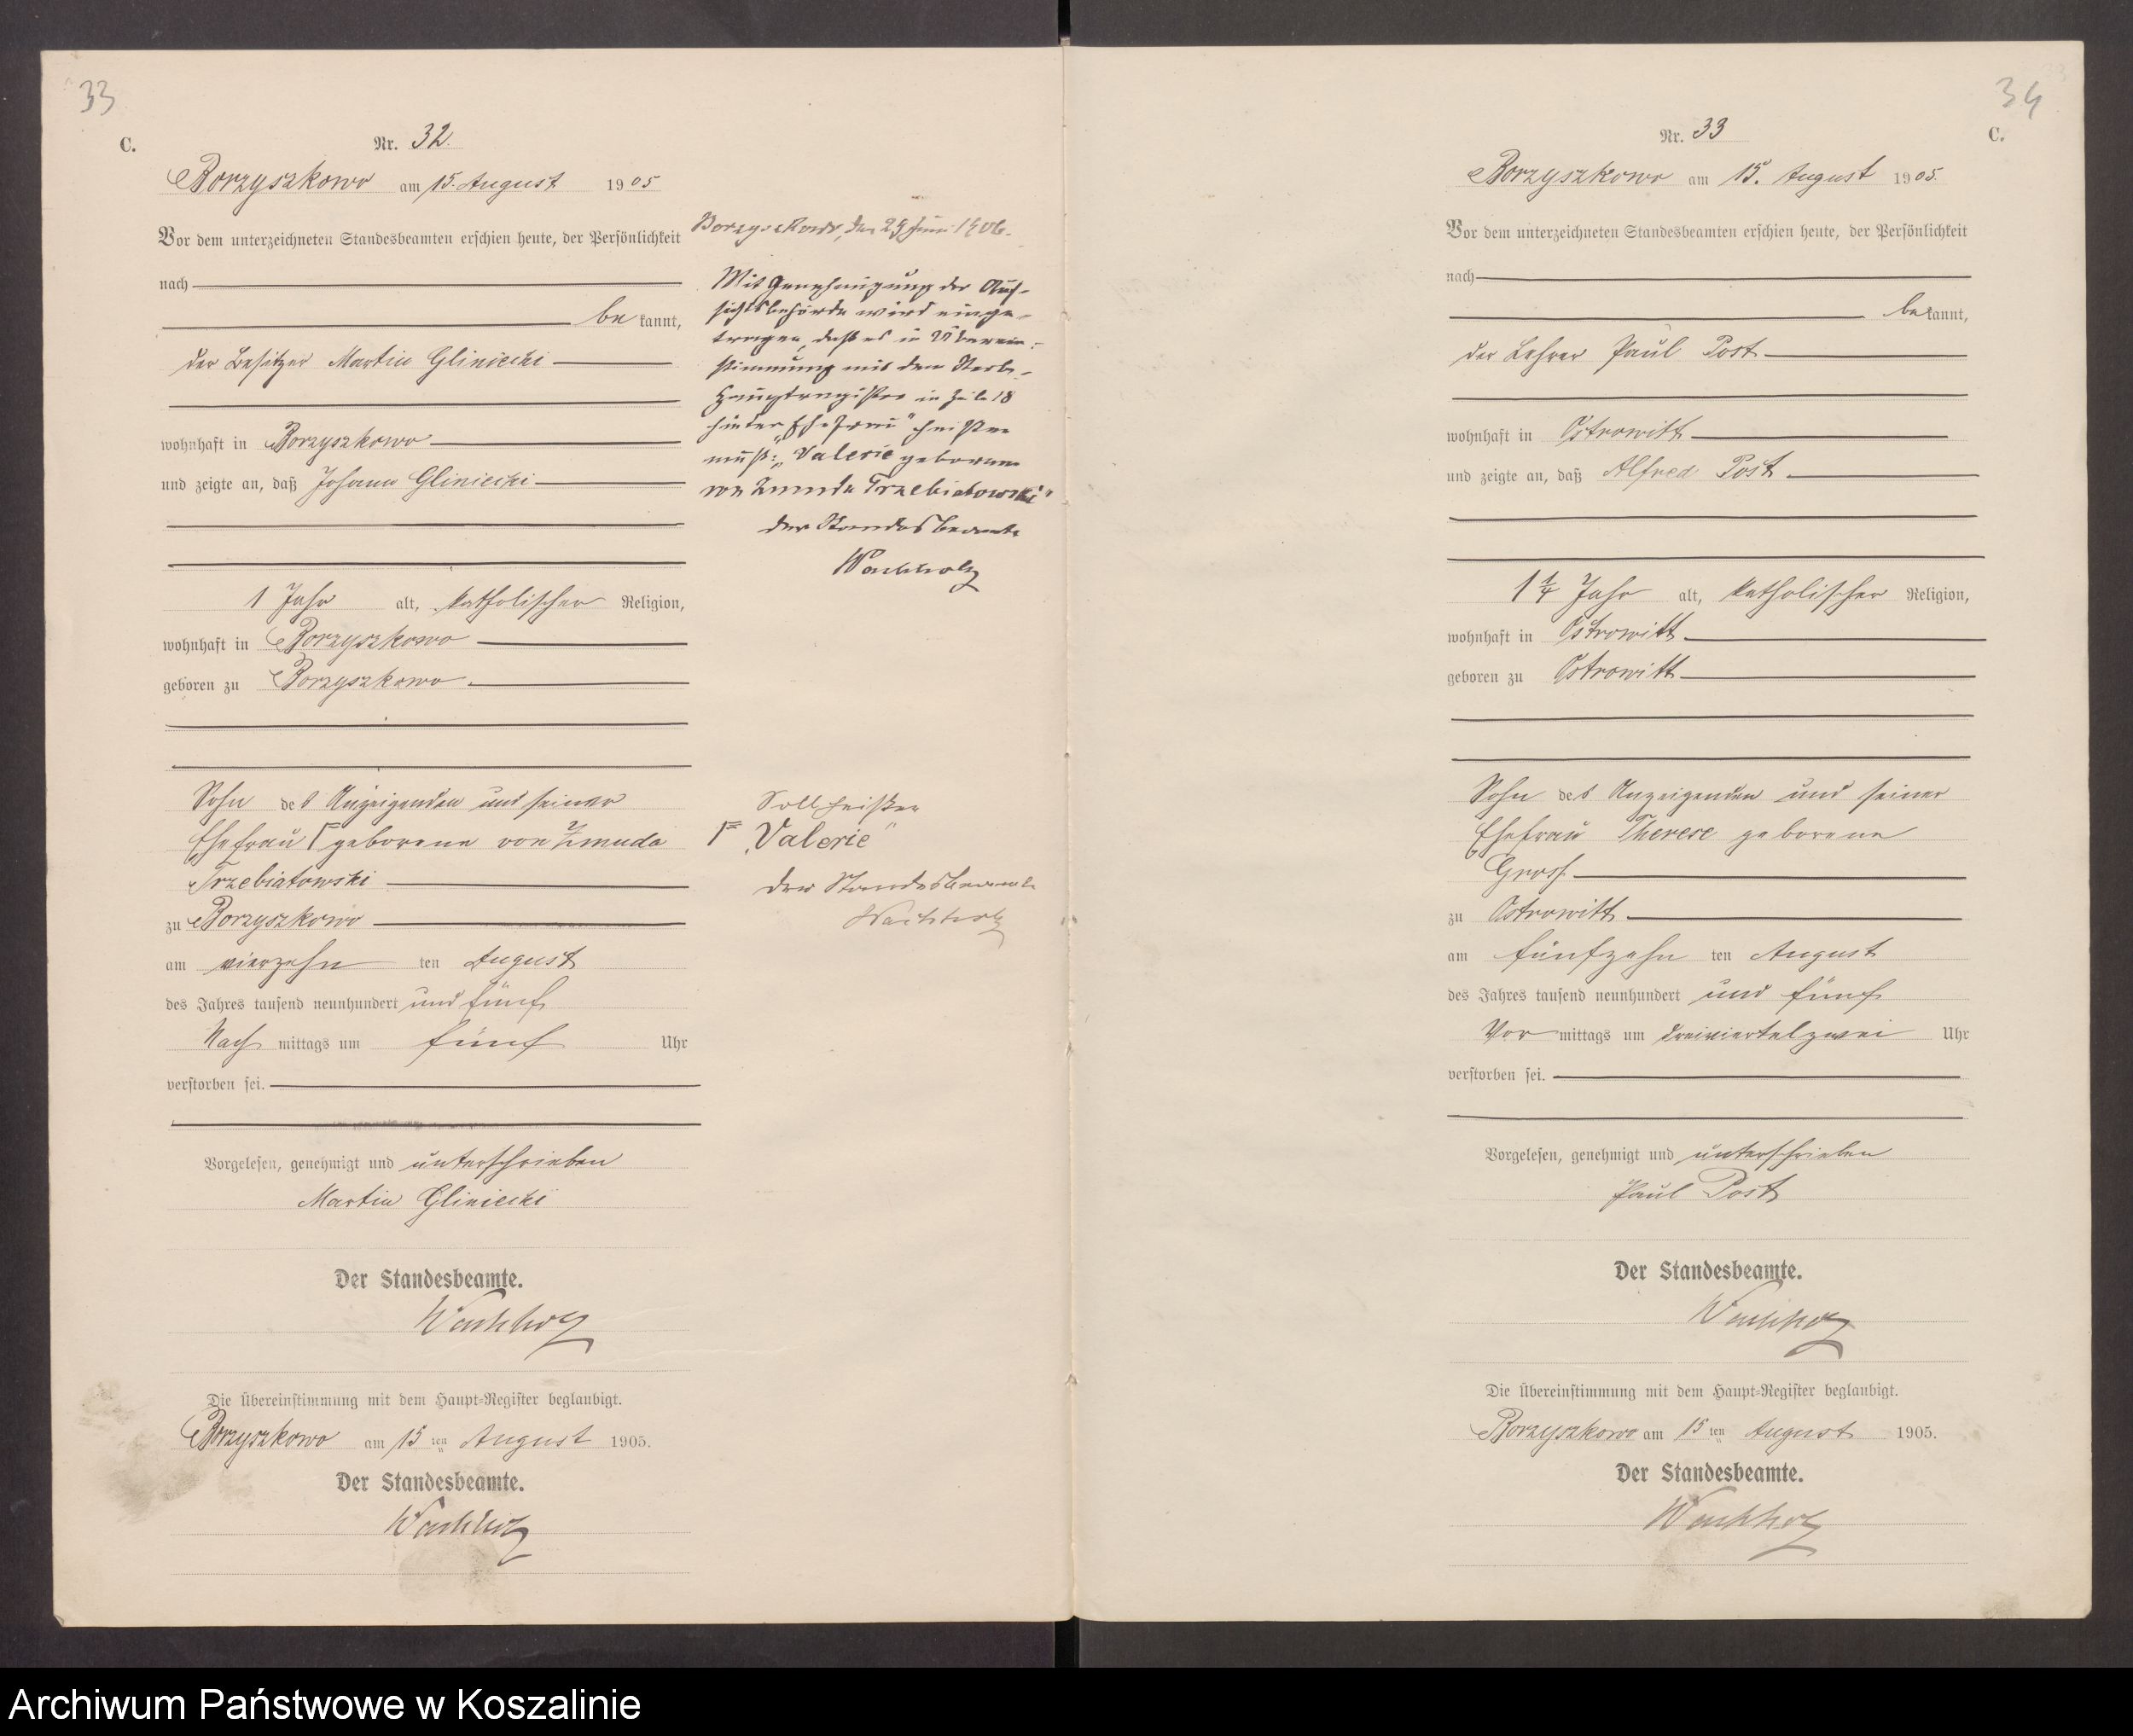 33
C.
Nr. 32.
Borzyszkowo am 15. August 1905
Vor dem unterzeichneten Standesbeamten erschien heute, der Persönlichkeit
nach
bekannt,
der Besitzer Martin Gliniecki
wohnhaft in Borzyszkowo
und zeigte an, daß Johann Gliniecki
1 Jahr alt, katholischer Religion,
wohnhaft in Borzyszkowo
geboren zu Borzyszkowo
Sohn des Anzeigenden und seiner
Ehefrau geborene von Zmuda
Trzebiatowski
zu Borzyszkowo
am vierzehn ten August
des Jahres tausend neunhundert und fünf
Nach mittags um fünf Uhr
verstorben sei.
Vorgelesen, genehmigt und unterschrieben
Martin Gliniecki
Der Standesbeamte.
Wachholz
Die Übereinstimmung mit dem Haupt-Register beglaubigt.
Borzyszkowo am 15 ten August 1905.
Der Standesbeamte.
Wachholz
Borzyszkowo, den 29 Juni 1906.
Mit Genehmigung der Auf-
sichtsbehörde wird einge-
tragen, daß es in Überein-
stimmung mit dem Sterbe-
Hauptregister in Zeile 18
hinter "Ehefrau" heißen
muß: "Valerie geborene
von Zmuda Trzebiatowski"
Der Standesbeamte
Wachholz
Soll heißen
"Valerie"
Der Standesbeamte
Wachholz
34
C.
Nr. 33
Borzyszkowo am 15. August 1905.
Vor dem unterzeichneten Standesbeamten erschien heute, der Persönlichkeit
nach
bekannt,
der Lehrer Paul Post
wohnhaft in Ostrowitt
und zeigte an, daß Alfred Post
1 1/4 Jahr alt, katholischer Religion,
wohnhaft in Ostrowitt
geboren zu Ostrowitt
Sohn des Anzeigenden und seiner
Ehefrau Therese geborene
Gross
zu Ostrowitt
am fünfzehn ten August
des Jahres tausend neunhundert und fünf
Vor mittags um dreiviertelzwei Uhr
verstorben sei.
Vorgelesen, genehmigt und unterschrieben
Paul Post
Der Standesbeamte.
Wachholz
Die Übereinstimmung mit dem Haupt-Register beglaubigt.
Borzyszkowo am 15 ten August 1905.
Der Standesbeamte.
Wachholz
Archiwum Państwowe w Koszalinie